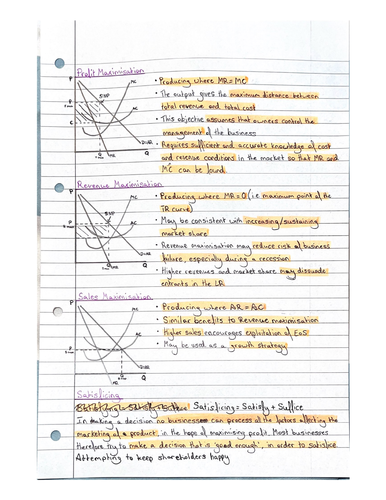 Profit Maximisation
• Producing where MR = MC
• The output gives the maximum distance between
total revenue and total cost
• This objective assumes that owners control the
management of the business
• Requires sufficient and accurate knowledge of cost
and revenue conditions in the market so that MR and
MC can be found
P
MC
SNP
AC
P
C
D=AR
MR
Q
Revenue Maximisation
• Producing where MR = 0 (i.e maximum point of the
TR curve)
• May be consistent with increasing/sustaining
market share
• Revenue maximisation may reduce risk of business
failure, especially during a recession
• Higher revenues and market share may dissuade
entrants in the LR
P
MC
SNP
AC
D=AR
MR
Q
Sales Maximisation
• Producing where AR = AC
• Similar benefits to Revenue maximisation
• Higher sales encourages exploitation of EoS
• May be used as a growth strategy
P
MC
AC
D=AR
MR
Q
Satisficing
Satisficing = Satisfy + Suffice
In making a decision no businesses can process all the factors affecting the
marketing of a product, in the hope of maximising profit. Most businesses
therefore try to make a decision that is 'good enough', in order to satisfice
Attempting to keep shareholders happy